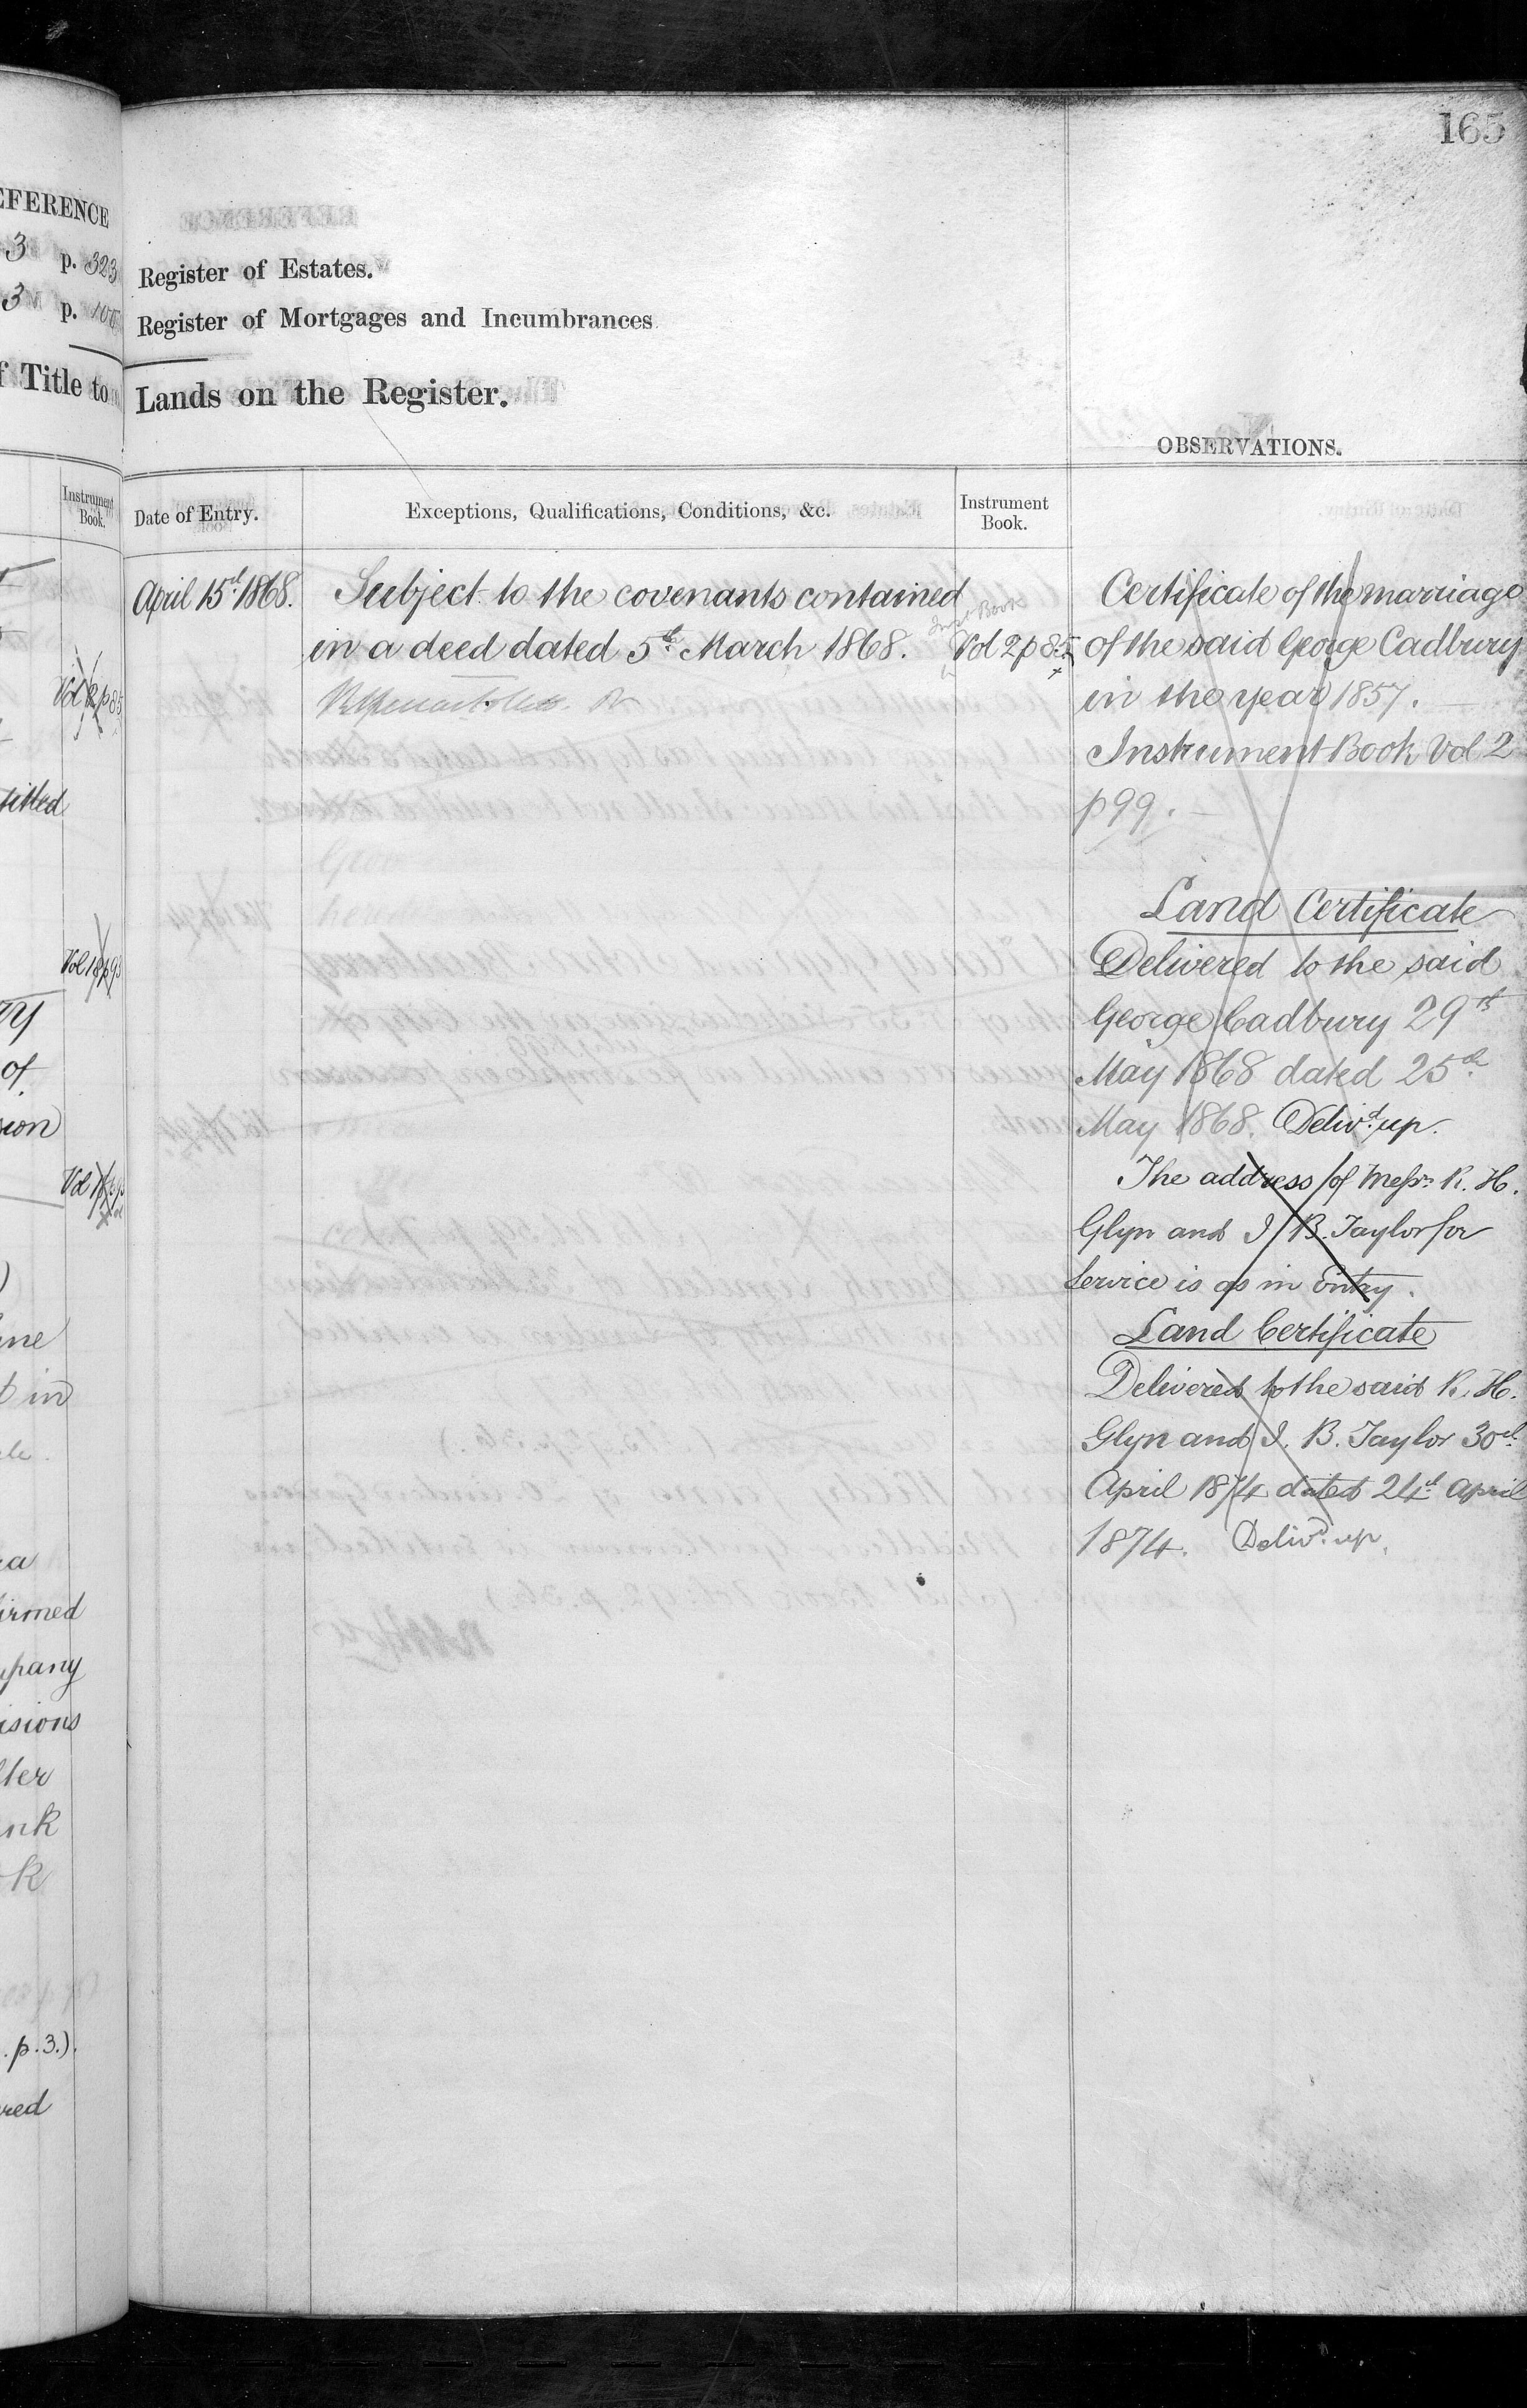 165
REFERENCE
3 p. 323
3 p.
Title to
Instrument
Book.
Vol 2 p 85
of
p. 3.).
Register of Estates.
Register of Mortgages and Incumbrances
Lands on the Register.
OBSERVATIONS.
Date of Entry.
Exceptions, Qualifications, Conditions, &c.
Instrument
Book.
April 15th 1868.
Subject to the covenants contained
in a deed dated 5th March 1868.
Inst Book
Vol 2 p 85
Certificate of the marriage
of the said George Cadbury
in the year 1857.
Instrument Book Vol 2
p 99.
Land Certificate
Delivered to the said
George Cadbury 29th
May 1868 dated 25th
May 1868. Delivd up.
The address of Messrs R. H.
Glyn and I. B. Taylor for
Service is as in Entry.
Land Certificate
Delivered to the said R. H.
Glyn and I. B. Taylor 30th
April 1874 dated 24th April
1874. Delivd up.